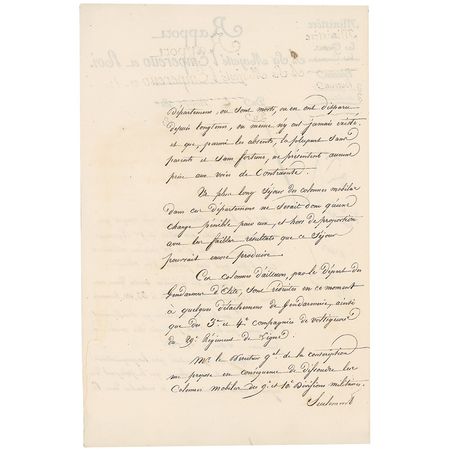 Ministère
Rapport
à Sa Majesté l'Empereur et Roi.
département, ou sont morts, ou en ont disparu
depuis longtems, ou même n'y ont jamais existé
et que, parmi les absents, la plupart sans
parents et sans fortune, ne présentent aucune
prise aux voies de Contrainte.
Un plus long séjour des colonnes mobiles
dans ces départemens ne serait donc qu'une
charge pénible pour eux, et hors de proportion
avec les faibles résultats que ce séjour
pourrait encore produire.
Ces colonnes d'ailleurs, par le Départ des
Gendarmes d'Elite, sont réduites en ce moment
à quelques détachemens de Gendarmerie, ainsi
que des 3e et 4e compagnies de voltigeurs
du 29e Régiment de Ligne.
Mr. le Directeur gal de la conscription
me propose en conséquence de dissoudre les
Colonnes mobiles des 9e et 10e Divisions militaires.
Seulement